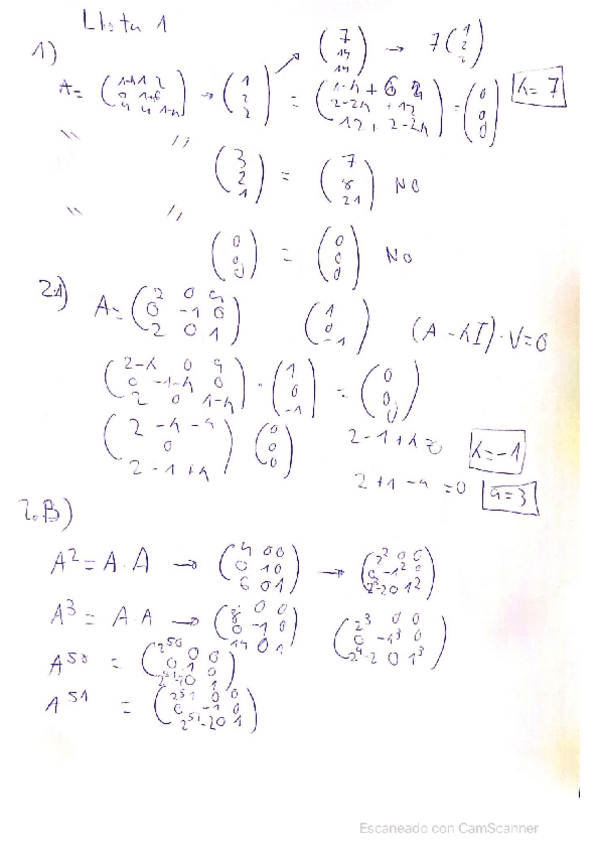 Llista 1
1)
(7 14 14) → 7 (1 2 2)
A = → (1 2 2) = = (0 0 0) λ = 7
" " (3 2 1) = (7 8 21) NO
" " (0 0 0) = (0 0 0) NO
2.A) A = (2 0 a
0 -1 0
2 0 1) (1 0 -1) (A - λI) · V = 0
(2-λ 0 a
0 -1-λ 0
2 0 1-λ) · (1 0 -1) = (0 0 0)
(2 - λ - a
0
2 - 1 + λ) (0 0 0) 2 - 1 + λ = 0 λ = -1
2 + 1 - a = 0 a = 3
2.B)
A² = A · A → (4 0 0
0 1 0
6 0 1) → (2² 0 0
0 -1² 0
2³-2 0 1²)
A³ = A · A → (8 0 0
0 -1 0
14 0 1) (2³ 0 0
0 -1³ 0
2⁴-2 0 1³)
A⁵⁰ = (2⁵⁰ 0 0
0 1 0
2⁵¹-2 0 1)
A⁵¹ = (2⁵¹ 0 0
0 -1 0
-2 0 1)
Escaneado con CamScanner